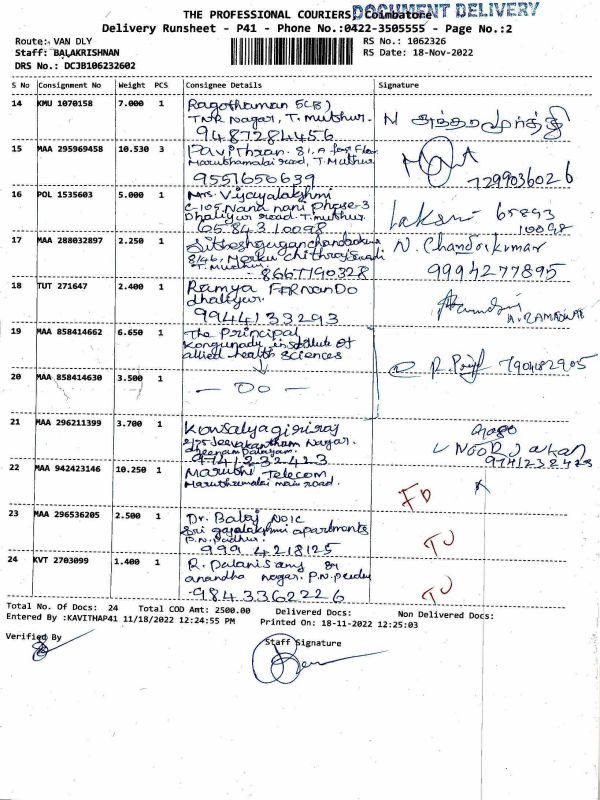 DOCUMENT DELIVERY
THE PROFESSIONAL COURIERS, Coimbatore
Delivery Runsheet - P41 - Phone No.:0422-3505555 - Page No.:2
Route: VAN DLY
RS No.: 1062326
Staff: BALAKRISHNAN
RS Date: 18-Nov-2022
DRS No.: DCJB106232602
S No Consignment No Weight PCS Consignee Details Signature
14 KMU 1070158 7.000 1 Ragothaman
TNR Nagar, T. muthur.
9487284456
15 MAA 295969458 10.530 3 Pavithran. 81, A first Floor
Marudhamalai road, T. Muthur
9551650639
7299036026
16 POL 1535603 5.000 1 Mrs. Vijayalakshmi
C-105, Nana nani phase-3
Dhaliyur road. T. muthur.
65843 10098
65893
10098
17 MAA 288032897 2.250 1
8/46,
T. Mudhur
- 8667190328
N. Chandrakumar
9994277895
18 TUT 271647 2.400 1 Ramya FERNANDO
dhaliyur.
9944133293
19 MAA 858414662 6.650 1 The Principal
Kongunadu institute of
allied health sciences
7904182905
20 MAA 858414630 3.500 1 - Do -
21 MAA 296211399 3.700 1 Kowsalya giriraj
Nagar.
9741232423
9741232423
22 MAA 942423146 10.250 1 Maruthi Telecom
Maruthamalai main road.
FD
23 MAA 296536205 2.500 1 Dr. Balaj
Sri gajalakshmi apartments
P.N. Pudhur.
999 4218125
TU
24 KVT 2703099 1.400 1 R. Palanisamy
anandha nagar. P.N. pudur
9843362226
TU
Total No. Of Docs: 24 Total COD Amt: 2500.00 Delivered Docs: Non Delivered Docs:
Entered By :KAVITHAP41 11/18/2022 12:24:55 PM Printed On: 18-11-2022 12:25:03
Verified By
Staff Signature